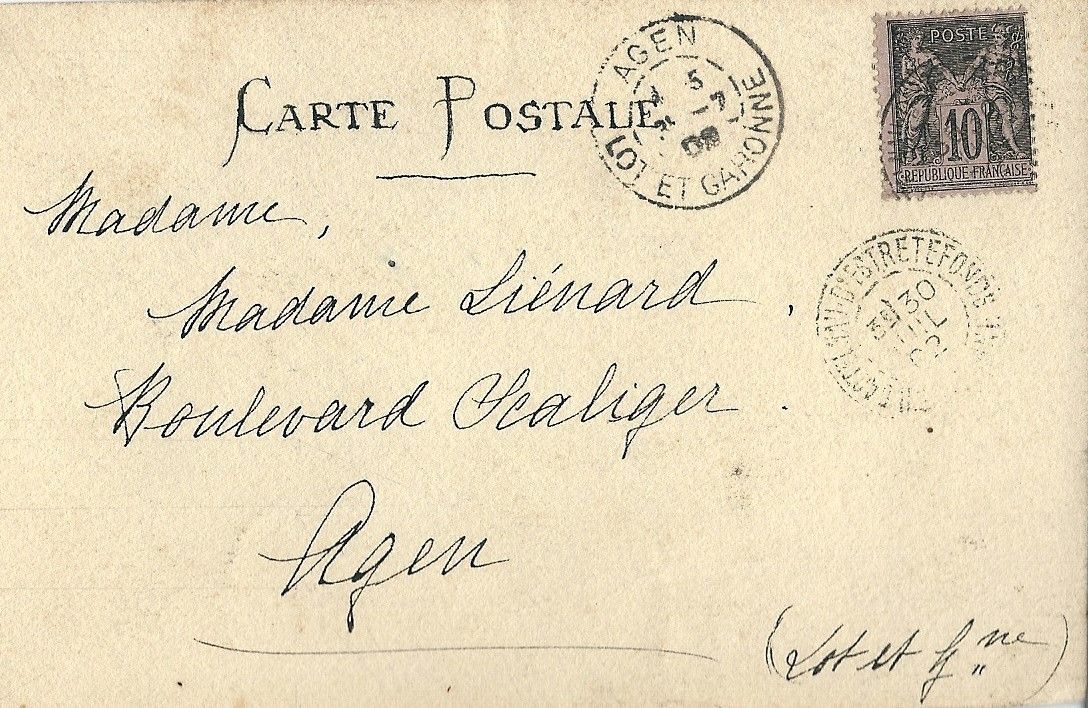 CARTE POSTALE
AGEN
5
-7
02
LOT ET GARONNE
POSTE
10
REPUBLIQUE FRANÇAISE
D'ESTRETEFONDS
3E 30
JUIL
02
Madame,
Madame Liénard.
Boulevard Scaliger.
Agen
(Lot et G"ne)